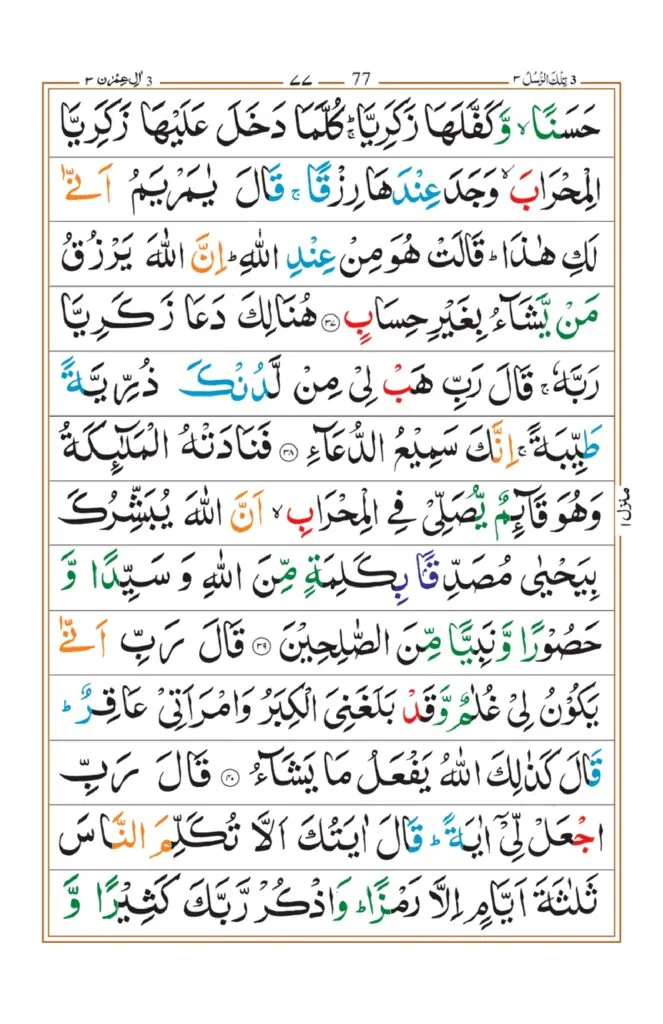 3 تِلْكَ الرُّسُلُ ٣
77 ٧٧
3 اٰلِ عِمْرٰن ٣
حَسَنًا ۙ وَّ كَفَّلَهَا زَكَرِيَّا ؕۚ كُلَّمَا دَخَلَ عَلَيْهَا زَكَرِيَّا
الْمِحْرَابَ ۙ وَجَدَ عِنْدَهَا رِزْقًا ۚ قَالَ يٰمَرْيَمُ اَنّٰى
لَكِ هٰذَا ؕ قَالَتْ هُوَ مِنْ عِنْدِ اللّٰهِ ؕ اِنَّ اللّٰهَ يَرْزُقُ
مَنْ يَّشَآءُ بِغَيْرِ حِسَابٍ ﴿٣٧﴾ هُنَالِكَ دَعَا زَكَرِيَّا
رَبَّهٗ ۚ قَالَ رَبِّ هَبْ لِىْ مِنْ لَّدُنْكَ ذُرِّيَّةً
طَيِّبَةً ۚ اِنَّكَ سَمِيْعُ الدُّعَآءِ ﴿٣٨﴾ فَنَادَتْهُ الْمَلٰٓئِكَةُ
وَهُوَ قَآئِمٌ يُّصَلِّىْ فِى الْمِحْرَابِ ۙ اَنَّ اللّٰهَ يُبَشِّرُكَ
بِيَحْيٰى مُصَدِّقًۢا بِكَلِمَةٍ مِّنَ اللّٰهِ وَ سَيِّدًا وَّ
حَصُوْرًا وَّنَبِيًّا مِّنَ الصّٰلِحِيْنَ ﴿٣٩﴾ قَالَ رَبِّ اَنّٰى
يَكُوْنُ لِىْ غُلٰمٌ وَّقَدْ بَلَغَنِىَ الْكِبَرُ وَامْرَاَتِىْ عَاقِرٌ ؕ
قَالَ كَذٰلِكَ اللّٰهُ يَفْعَلُ مَا يَشَآءُ ﴿٤٠﴾ قَالَ رَبِّ
اجْعَلْ لِّىْٓ اٰيَةً ؕ قَالَ اٰيَتُكَ اَلَّا تُكَلِّمَ النَّاسَ
ثَلٰثَةَ اَيَّامٍ اِلَّا رَمْزًا ؕ وَاذْكُرْ رَّبَّكَ كَثِيْرًا وَّ
منزل ١